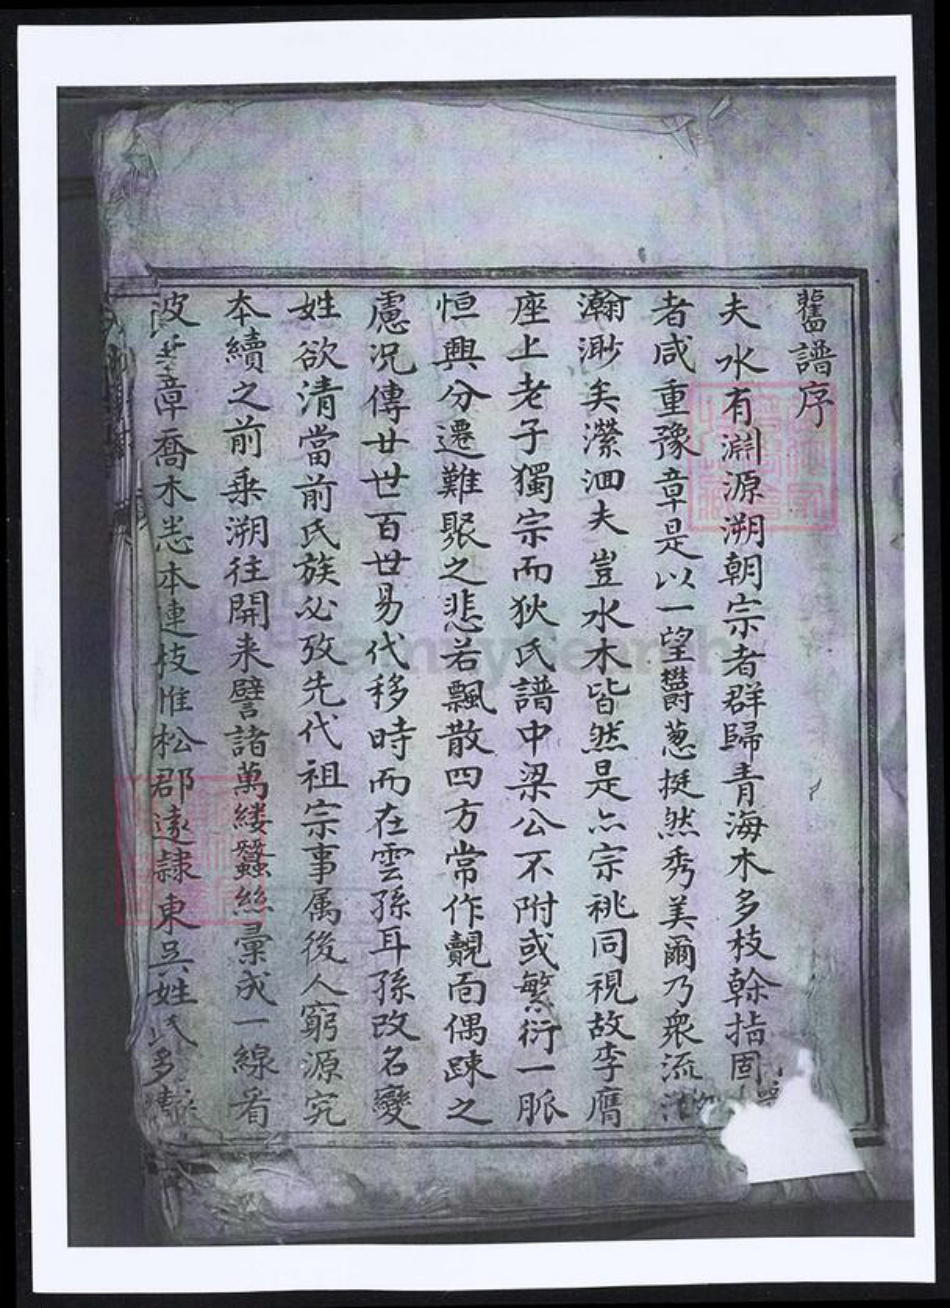 舊譜序
夫水有淵源溯朝宗者群歸青海木多枝榦指固
者咸重豫章是以一望欝葱挺然秀美爾乃衆流
瀚渺矣瀠洄夫豈水木皆然是亦宗祧同視故李膺
座上老子獨宗而狄氏譜中梁公不附或繁衍一脈
恒興分遷難聚之悲若飄散四方常作覿面偶踈之
慮況傳廿世百世易代移時而在雲孫耳孫改名變
姓欲清當前氏族必攷先代祖宗事属後人窮源究
本續之前乗溯往開来譬諸萬縷蠶絲彙成一線看
波 章喬木恙本連枝惟松郡遠隷東吳姓氏多